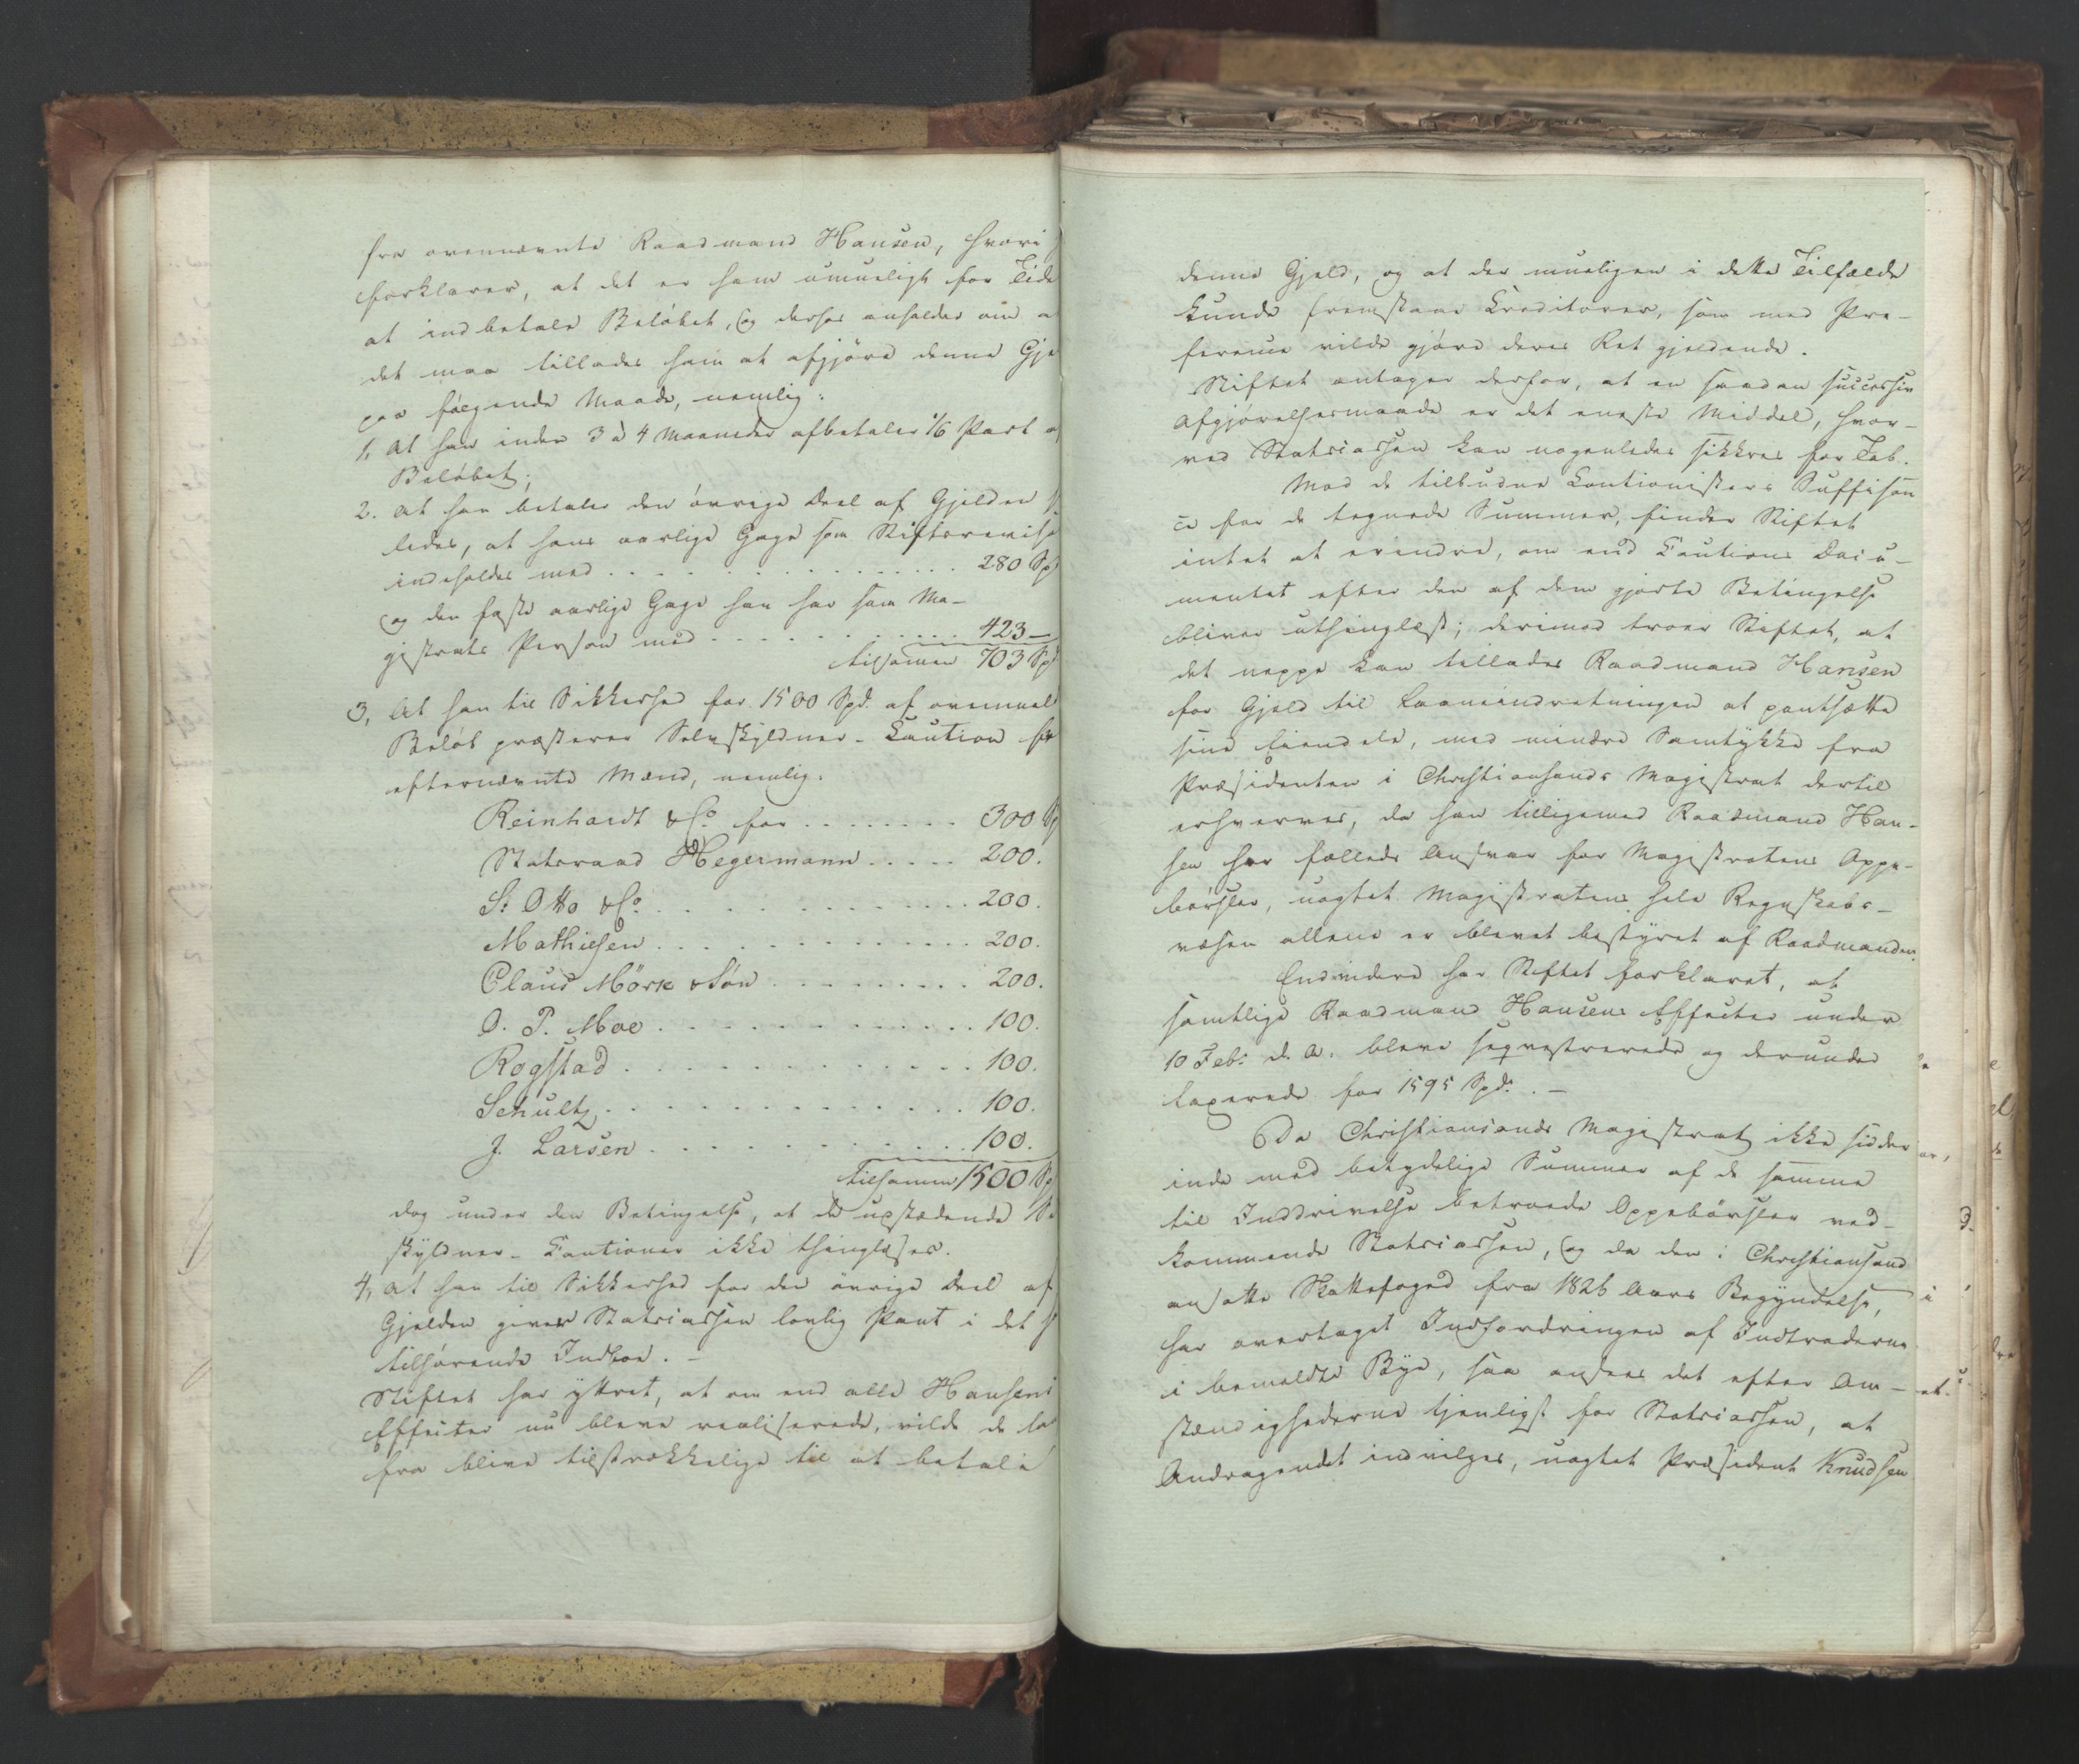 fra ovennævnte Raadmand Hansen, hvori
forklarer, at det er ham umueligt for Tide
at indbetale Beløbet, og derfor anholder om a
det maa tillades ham at afgjøre denne Gje
paa følgende Maade, nemlig:
1, At han inden 3 à 4 Maaneder afbetaler 1/6 Part a
Beløbet;
2. At han betaler den øvrige Deel af Gjelden s
ledes, at hans aarlige Gage som Stiftsrevis
indeholdes med . . . . . . . . . . . 280 Sp
og den faste aarlige Gage han har som Ma-
gistrats Person med . . . . . . . . . 423 –
tilsamen 703 Sp
3, At han til Sikkerhed for 1500 Spd. af ovenmel
Beløb præsterer Selvskyldner-Caution fra
efternævnte Mænd, nemlig:
Reinhardt & Co. for . . . . . . . 300 Sp
Statsraad Hegermann . . . . . 200.
S. Otto & Co. . . . . . . . . . . . 200.
Mathiesen . . . . . . . . . . . . 200.
Claus Mörk & Sön . . . . . . . . . 200.
O. P. Moe . . . . . . . . . . . . 100.
Rogstad . . . . . . . . . . . . . 100.
Schultz . . . . . . . . . . . . . 100.
J. Larsen . . . . . . . . . . . . 100.
tilsamen 1500 Sp
dog under den Betingelse, at de udstædende Se
skyldner-Cautioner ikke thinglæses.
4, At han til Sikkerhed for den övrige Deel af
Gjelden giver Statscassen lovlig Pant i det h
tilhørende Indboe. –
Stiftet har yttret, at om end alle Hansens
Effecter nu bleve realiserede, vilde de la
fra blive tilstrækkelige til at betale
denne Gjeld, og at der mueligen i dette Tilfælde
kunde fremstaae Creditorer, som med Pre-
ference vilde gjøre deres Ret gjeldende.
Stiftet antager derfor, at en saadan successiv
Afgjørelsesmaade er det eneste Middel, hvor-
ved Statscassen kan nogenledes sikkres for Tab.
Mod de tilbudne Cautionisters Suffisan
ce for de tegnede Summer, finder Stiftet
intet at erindre, om end Cautions Docu-
mentet efter den af dem gjorte Betingelse
bliver uthinglæst; derimod troer Stiftet, at
det neppe kan tillades Raadmand Hansen
for Gjeld til Laaneindretningen at pantsætte
sine Eiendele, med mindre Samtykke fra
Præsidenten i Christiansands Magistrat dertil
erhverves, da han tilligemed Raadmand Han-
sen har fælleds Ansvar for Magistratens Oppe-
börsler, uagtet Magistratens hele Regnskabs-
væsen allene er blevet bestyret af Raadmanden.
Endvidere har Stiftet forklaret, at
samtlige Raadmand Hansens Effecter under
10 Feb: d. A. bleve seqvestrerede og derunder
taxerede for 1595 Spd. . –
Da Christiansands Magistrat ikke sidder
inde med betydelige Summer af de samme
til Inddrivelse betroede Oppebörsler ved-
kommende Statscassen, og da den i Christiansand
ansatte Skattefoged fra 1826 Aars Begyndelse,
har overtaget Indfordringen af Indtraderne
i bemeldte Bye, saa ansees det efter Om-
stændighederne tjenligst for Statscassen, at
Andragendet indvilges, uagtet Præsident Knudsen